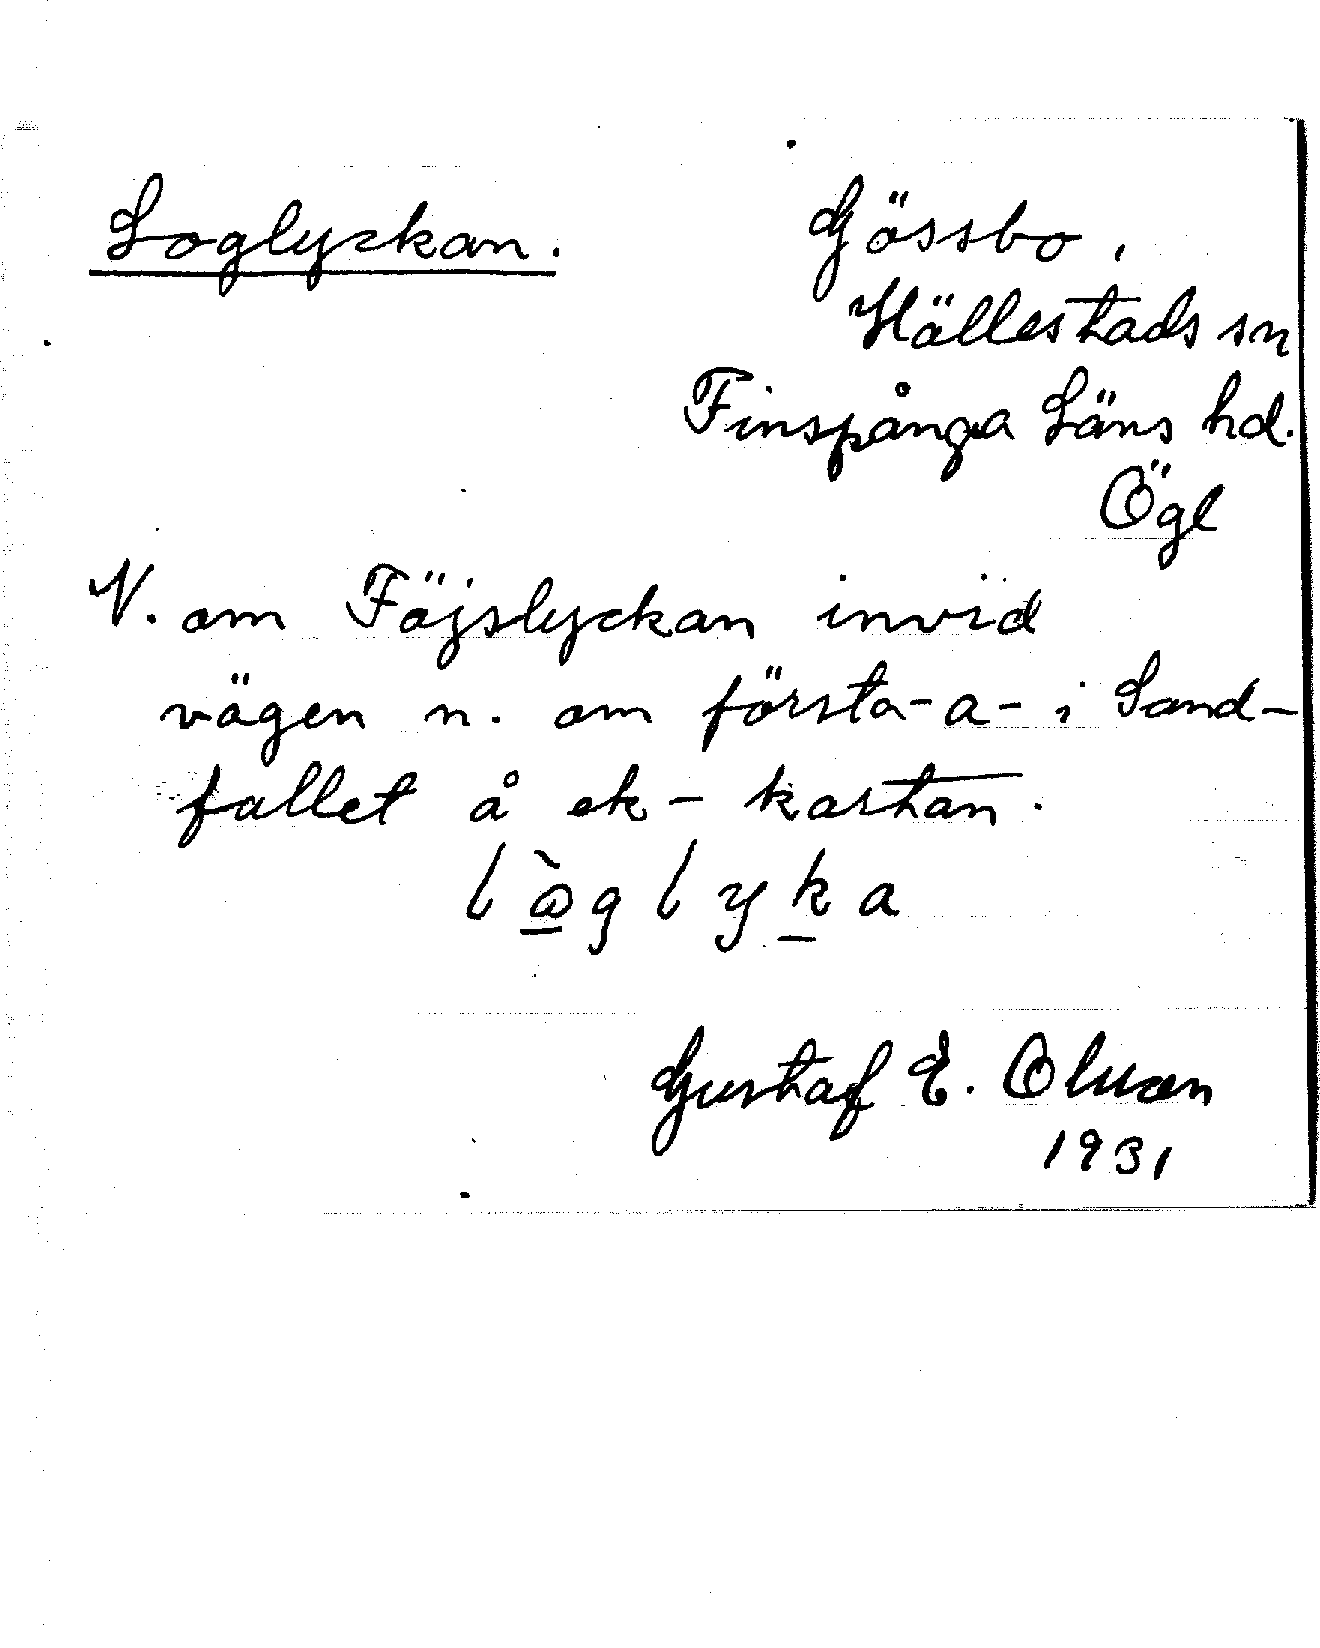 Loglyckan.
Gössbo,
Hällestads sn
Finspånga Läns hd.
Ögl
N. om Föjslyckan invid
vägen n. om första -a- i Sand-
fallet å ek-kartan.
lòglyka
Gustaf E. Olsson
1931